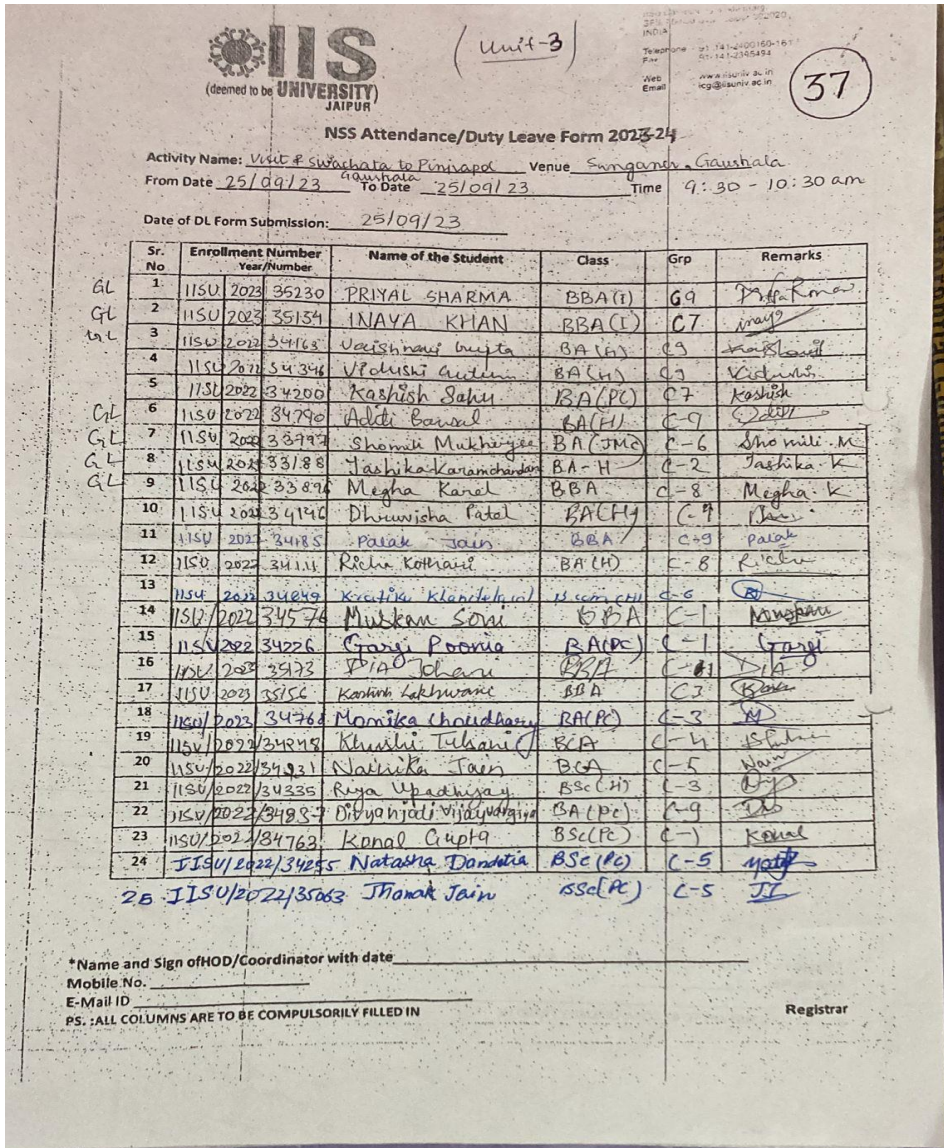 IIS
(deemed to be UNIVERSITY)
JAIPUR
(Unit-3)
INDIA
Telephone
Web www.iisuniv.ac.in
Email icg@iisuniv.ac.in
37
NSS Attendance/Duty Leave Form 2023-24
Activity Name: Visit & Swachata to Pinjrapol Gaushala Venue Sanganer, Gaushala
From Date 25/09/23 To Date 25/09/23 Time 9:30 - 10:30 am
Date of DL Form Submission: 25/09/23
Sr. No Enrollment Number Year/Number Name of the Student Class Grp Remarks
GL 1 IISU 2023 35230 PRIYAL SHARMA BBA(I) G9
GL 2 IISU 2023 35134 INAYA KHAN BBA(I) C7 inaya
GL 3 IISU 2022 34163 Vaishnavi Gupta BA(H) C9 Vaishnavi
4 IISU 2022 34346 Vidushi BA(H) C9 Vidushi
5 IISU 2022 34200 Kashish Sahu BA(PC) C7 Kashish
GL 6 IISU 2022 34790 Aditi Bansal BA(H) C-9 Aditi
GL 7 IISU 2022 33797 Shomili Mukherjee BA(JMC) C-6 Shomili.M
GL 8 IISU 2022 33188 Jashika Karamchandani BA-H C-2 Jashika.K
GL 9 IISU 2022 33896 Megha Karel BBA C-8 Megha.K
10 IISU 2022 34146 Dhruvisha Patel BA(H) C-9
11 IISU 2022 34185 Palak Jain BBA C-9 Palak
12 IISU 2022 34111 Richa Kothari BA(H) C-8 Richa
13 IISU 2022 34849 Kratika Khandelwal B.com(H) C-6
14 IISU/2022/34576 Muskan Soni BBA C-1 Muskan
15 IISU/2022 34226 Gargi Poonia BA(PC) C-1 Gargi
16 IISU 2023 35173 DIA Johari BBA C-11 DIA
17 IISU 2023 35156 Kashish Lakhwani BBA C3
18 IISU/2023 34768 Monika Choudhary BA(PC) C-3 M
19 IISU/2022/34248 Khushi Tulsani BCA C-4
20 IISU/2022/34931 Nainika Jain BCA C-5 Nain
21 IISU/2022/34335 Riya Upadhyay BSc(H) C-3
22 IISU/2022/34837 Divyanjali Vijayvargiya BA(PC) C-9
23 IISU/2022/34763 Konal Gupta BSc(PC) C-1 Konal
24 IISU/2022/34255 Natasha Dandotia BSc(PC) C-5
25 IISU/2022/35063 Jhanak Jain BSc(PC) C-5 JJ
*Name and Sign ofHOD/Coordinator with date
Mobile No.
E-Mail ID
PS. :ALL COLUMNS ARE TO BE COMPULSORILY FILLED IN
Registrar